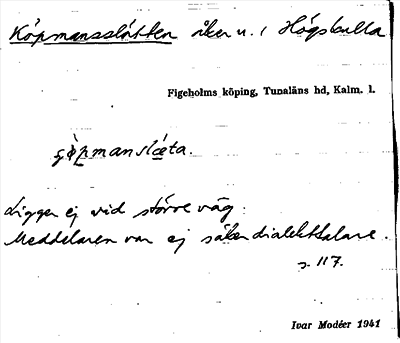 Köpmansslätten åker u. / Högskulla
Figeholms köping, Tunaläns hd, Kalm. l.
çöpmanslæta.
Ligger ej vid större väg.
Meddelaren var ej säker dialekttalare.
s. 117.
Ivar Modéer 1941